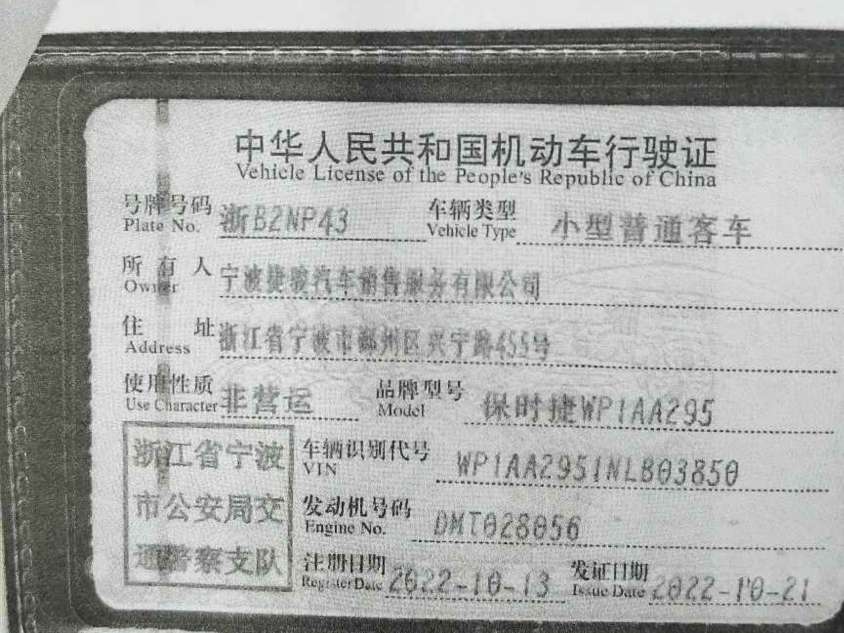 中华人民共和国机动车行驶证
Vehicle License of the People's Republic of China
号牌号码 浙B2NP43 车辆类型 小型普通客车
Plate No. Vehicle Type
所有人 宁波捷骏汽车销售服务有限公司
Owner
住址 浙江省宁波市鄞州区兴宁路455号
Address
使用性质 非营运 品牌型号 保时捷WP1AA295
Use Character Model
浙江省宁波 车辆识别代号 WP1AA2951NLB03850
VIN
市公安局交 发动机号码 DMT028056
Engine No.
通警察支队 注册日期 2022-10-13 发证日期 2022-10-21
Register Date Issue Date